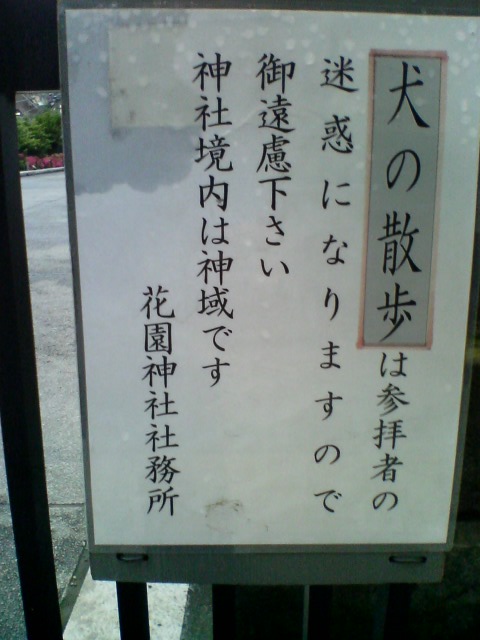 犬の散歩は参拝者の
迷惑になりますので
御遠慮下さい
神社境内は神域です
花園神社社務所